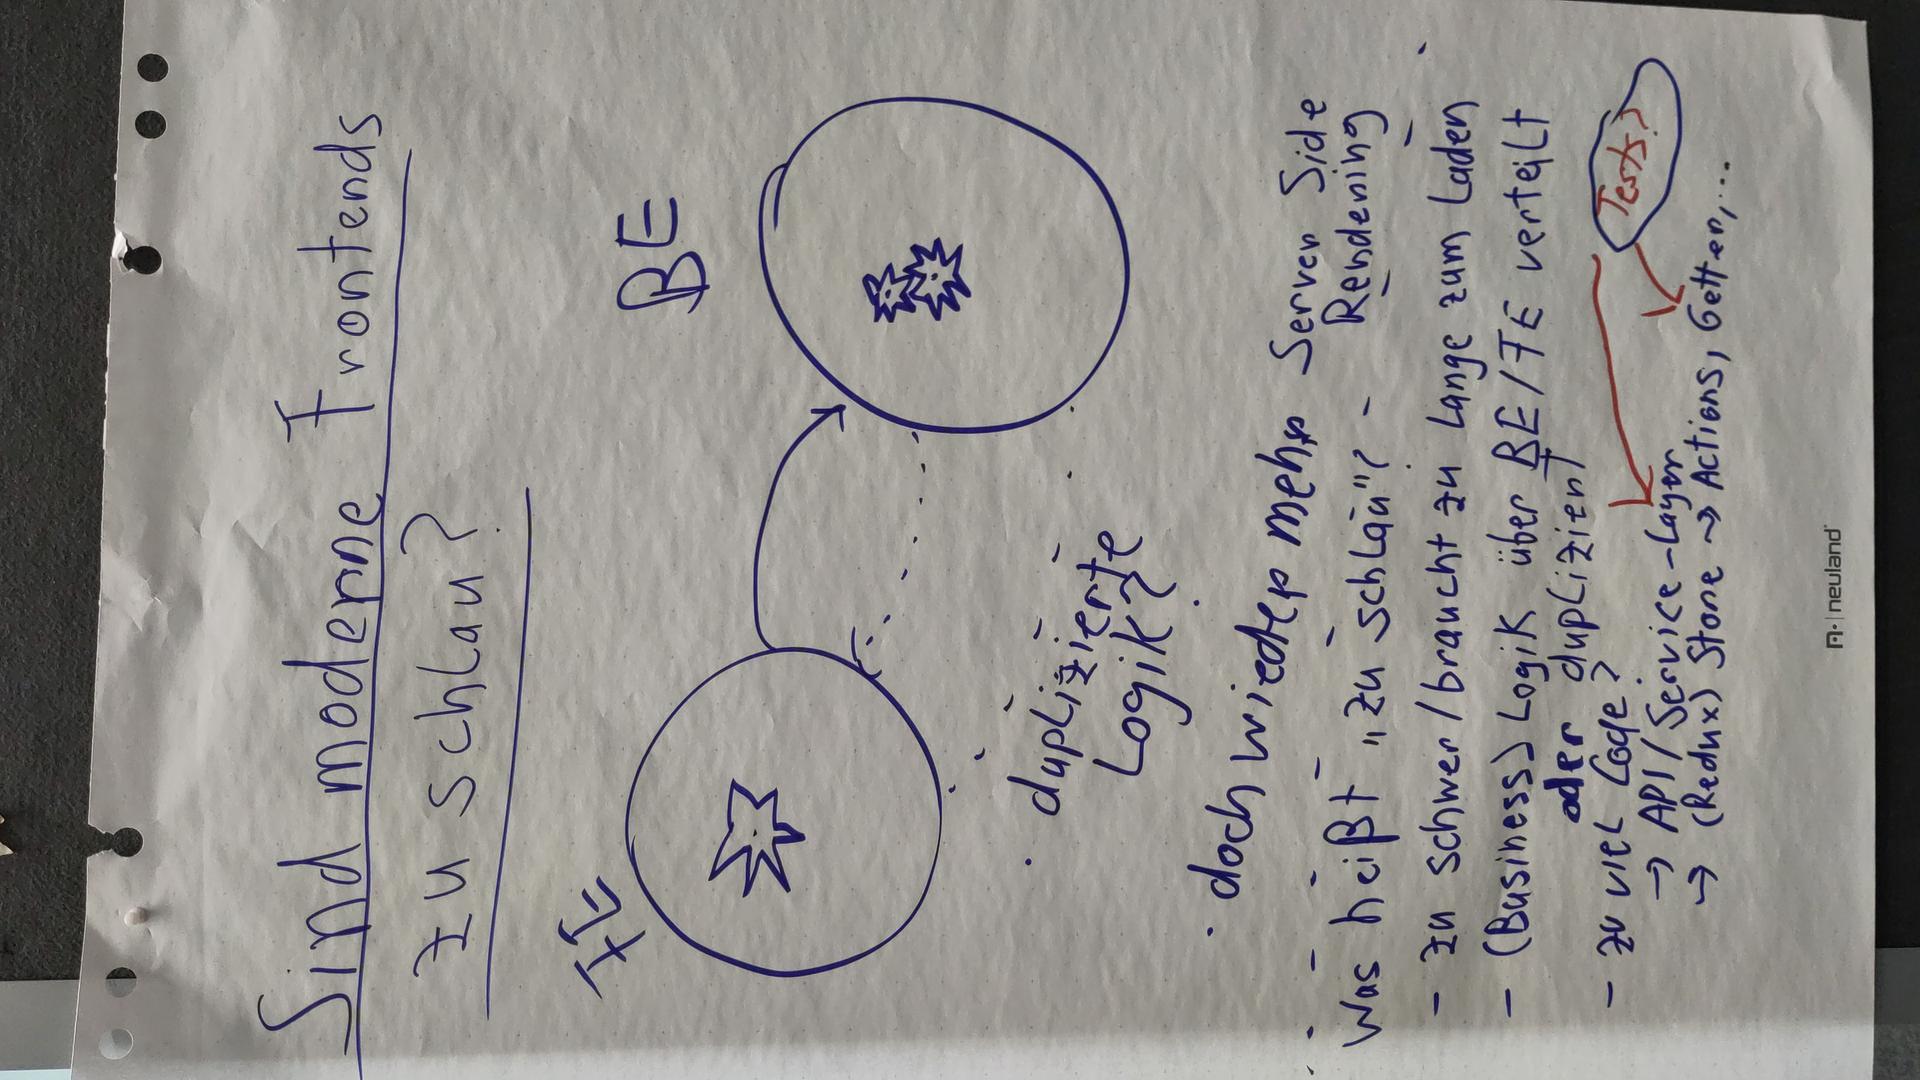 Sind moderne Frontends
zu schlau?
FE
BE
· duplizierte
Logik?
· doch wieder mehr Server Side
Rendering
Was heißt „zu schlau"?
- zu schwer/braucht zu lange zum Laden
- (Business) Logik über BE/FE verteilt
oder dupliziert
- zu viel Code?
Tests?
→ API/Service-Layer
→ (Redux) Store → Actions, Getter,...
neuland